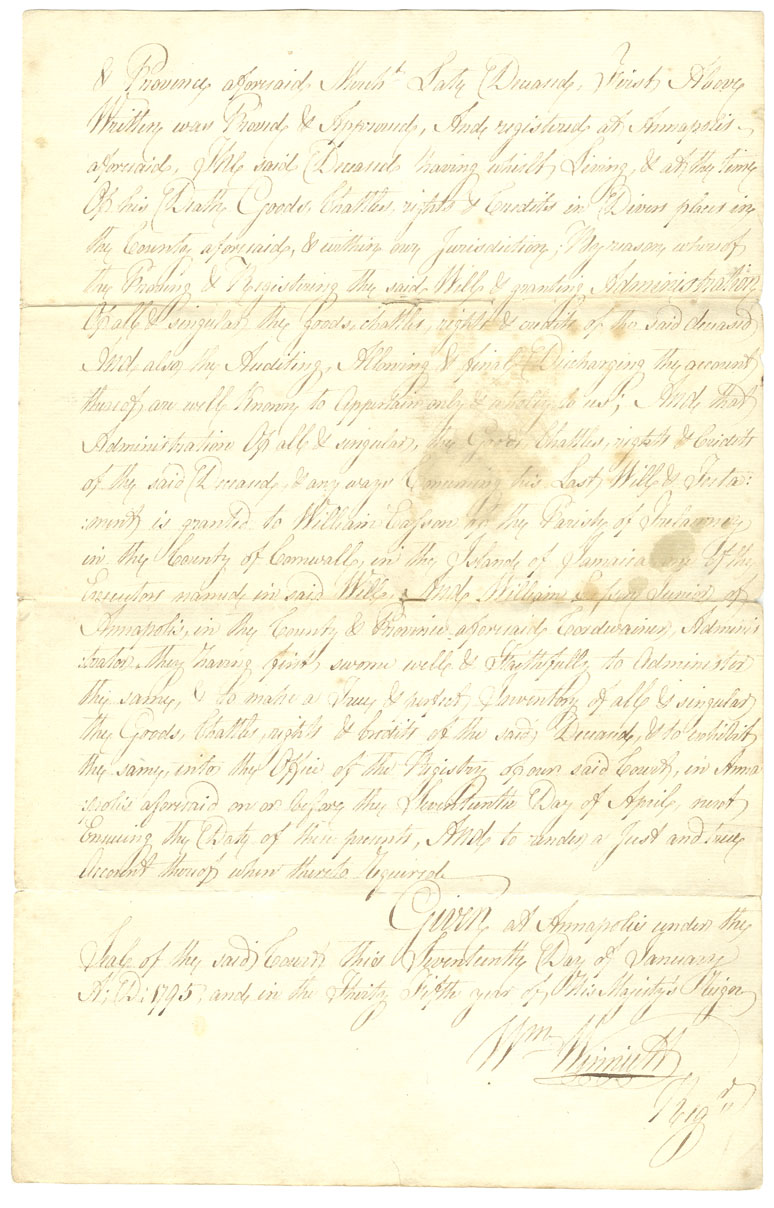 & Province aforesaid Mercht. Late Deceased, First Above
Written was Proved & Approved, And registered at Annapolis
aforesaid, The said Deceased having whilst Living, & at the time
Of his Death Goods Chattles rights & Credits in Divers places in
the County aforesaid, & within our Jurisdiction; By reason whereof
the Proving & Registering the said Will & granting Administration
Of all & singular the Goods, chattles, rights & credits of the said deceased
And also the Auditing, Allowing & final Discharging the account
thereof, are well Known to Appertain only & wholly to us; And that
Administration Of all & singular, the Goods Chattles, rights & Credits
of the said Deceased, & any ways Concerning his Last Will & Testa:
:ment is granted to William in the Parish of
in the County of Cornwall, in the Island of Jamaica one of the
Executors named in said Will, And William Junior of
Annapolis, in the County & Province aforesaid Cordwainer, Adminis
:trator they having first sworn well & Faithfully to Administer
the same, & to make a True & perfect Inventory of all & singular
the Goods, Chattles, rights & Credits of the said Deceased, & to exhibit
the same, into the Office of the Registry of our said Court, in Anna
:polis aforesaid on or before the Seventeenth Day of April next
Ensuing the Date of these presents, And to render a Just and true
Account thereof when thereto Required.
Given at Annapolis under the
Seal of the said Court this Seventeenth Day of January
A: D: 1795; and in the Thirty Fifth year of His Majesty's Reign
Wm Winniett
Regr